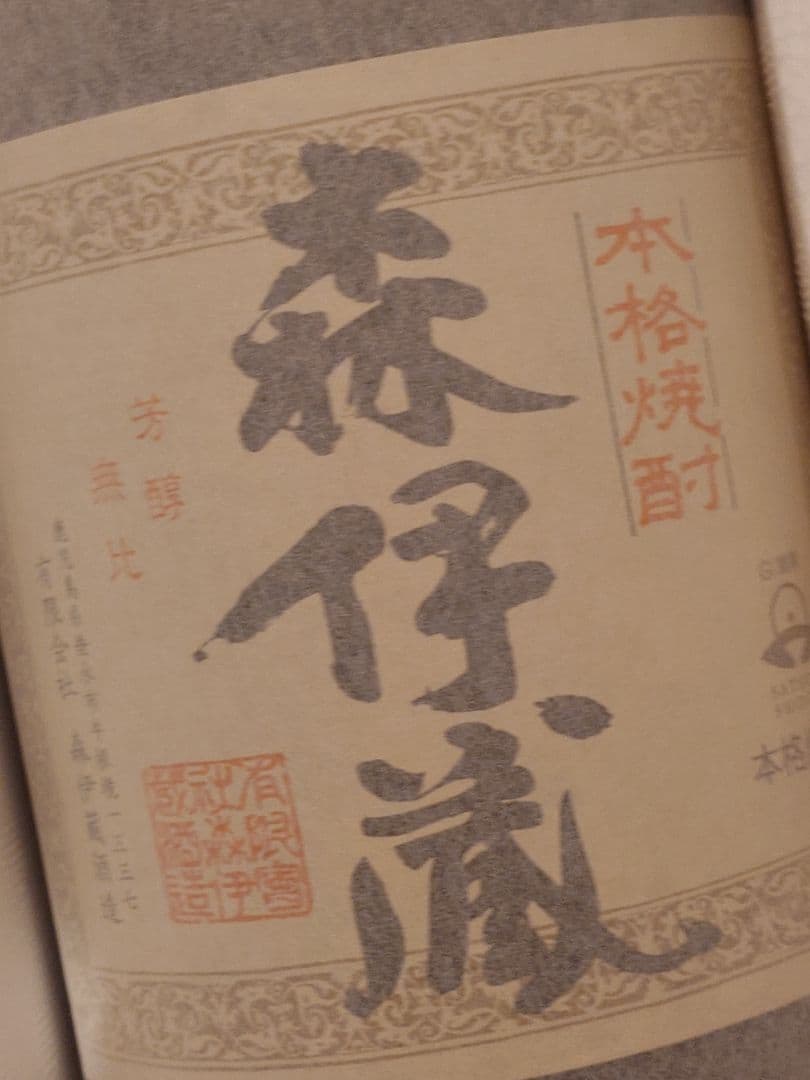 本格焼酎
森伊蔵
芳醇
無比
鹿児島県垂水市牛根境一三三七
有限会社 森伊蔵酒造
有限會
社森伊
蔵酒造
本格